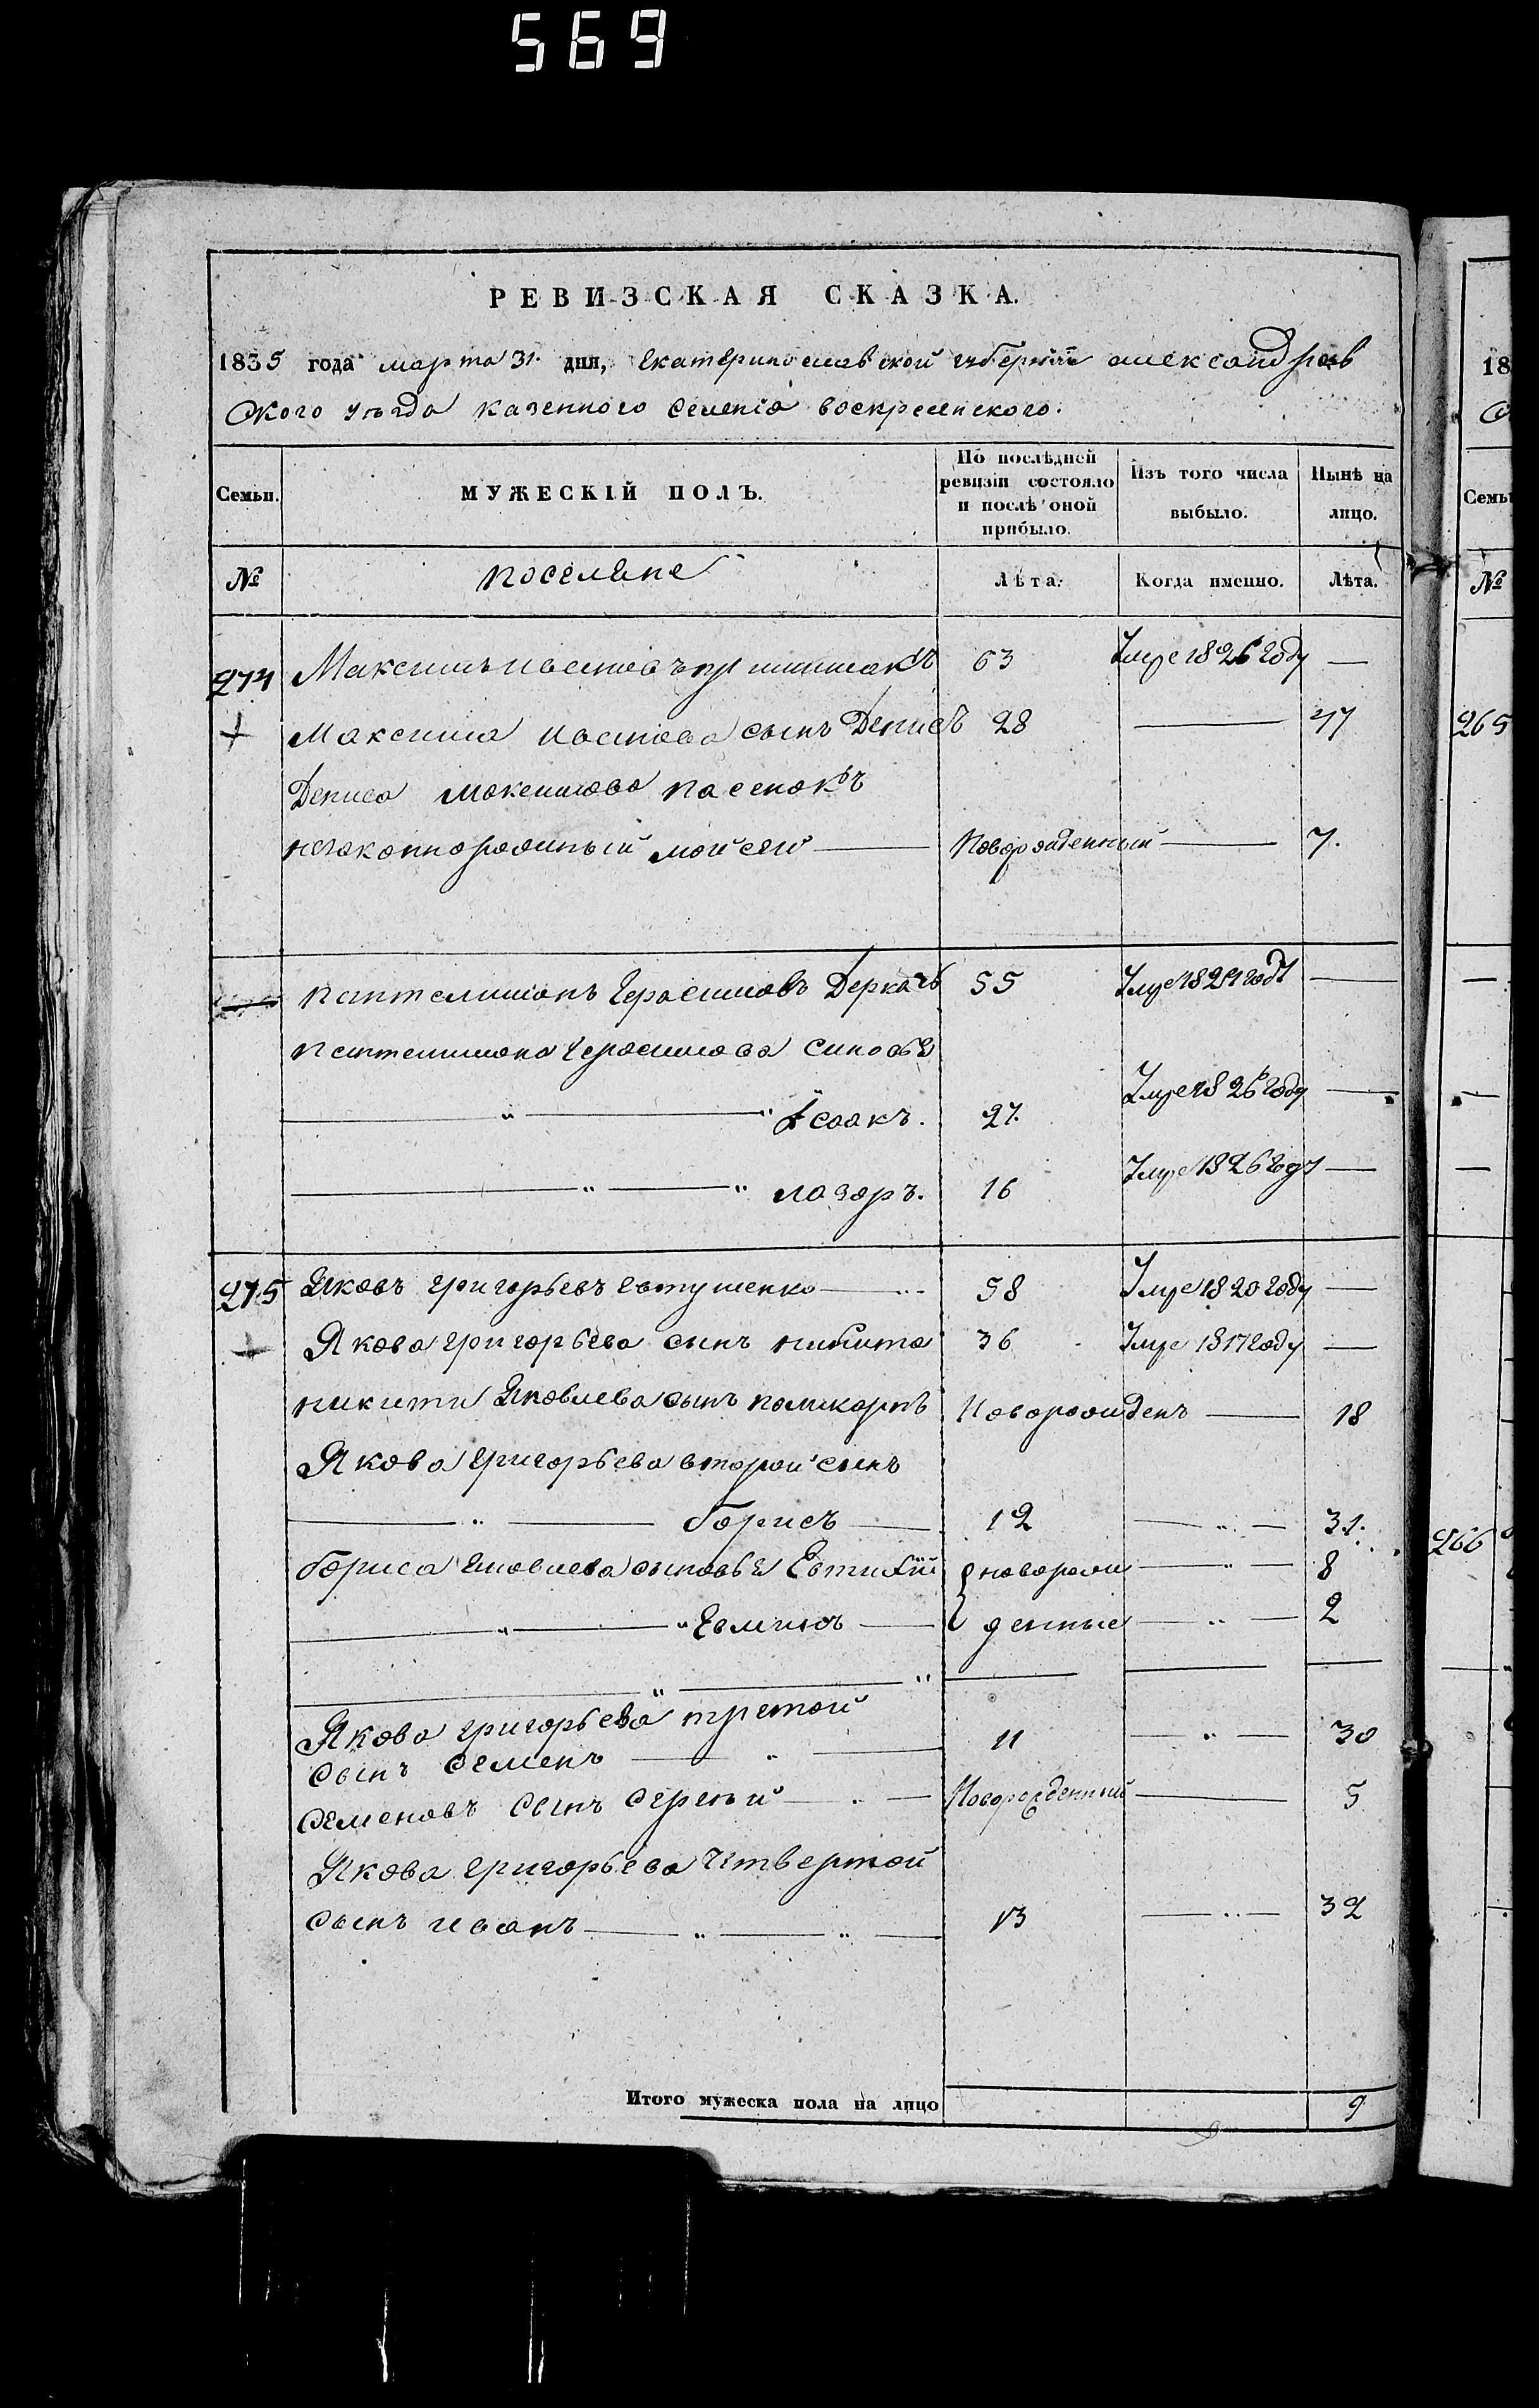 569
РЕВИЗСКАЯ СКАЗКА.
1835 года марта 31. дня, Екатеринославской губернiи александров
Ского уѣзда казенного Селенiя воскресенского.
Семьи. МУЖЕСКІЙ ПОЛЪ. По послѣдней ревизіи состояло и послѣ оной прибыло. Изъ того числа выбыло. Нынѣ на лицо.
№ поселяне Лѣта. Когда именно. Лѣта.
274 Максимъ 63 Умре 1826 году —
Максима сынъ Денисъ 28 — 47
Дениса Максимова пасенокъ
незаконнорожиный мойсей — Новорожденный — 7.
Пантелимонъ Герасимовъ Деркачь 55 Умре 1824 году —
Пантелимона Герасимова синовья
— " — " Ісаакъ. 27. Умре 1826 году —
— " — " лазоръ. 16 Умре 1826 году —
275 Яковъ григорьевъ евтушенко — 58 Умре 1820 году —
Якова григорьева сынъ никита 36 Умре 1817 году —
никити Яковлева сынъ поликарпъ Новорожиденъ — 18
Якова григорьева второй сынъ
— " — борисъ — 12 — " — 31.
бориса Яковлева сыновья Евтихiй { новорожи — " — 8
— " — " — { денные — " — 2
— " — " — — —
Якова григорьева третой
сынъ семенъ — " — 11 — " — 30
семеновъ сынъ сергей — " — Новорожденный — 5
Якова григорьева Четвертой
сынъ иванъ — " — " — 13 — " — 32
Итого мужеска пола на лицо 9
18
Семьи
№
265
266